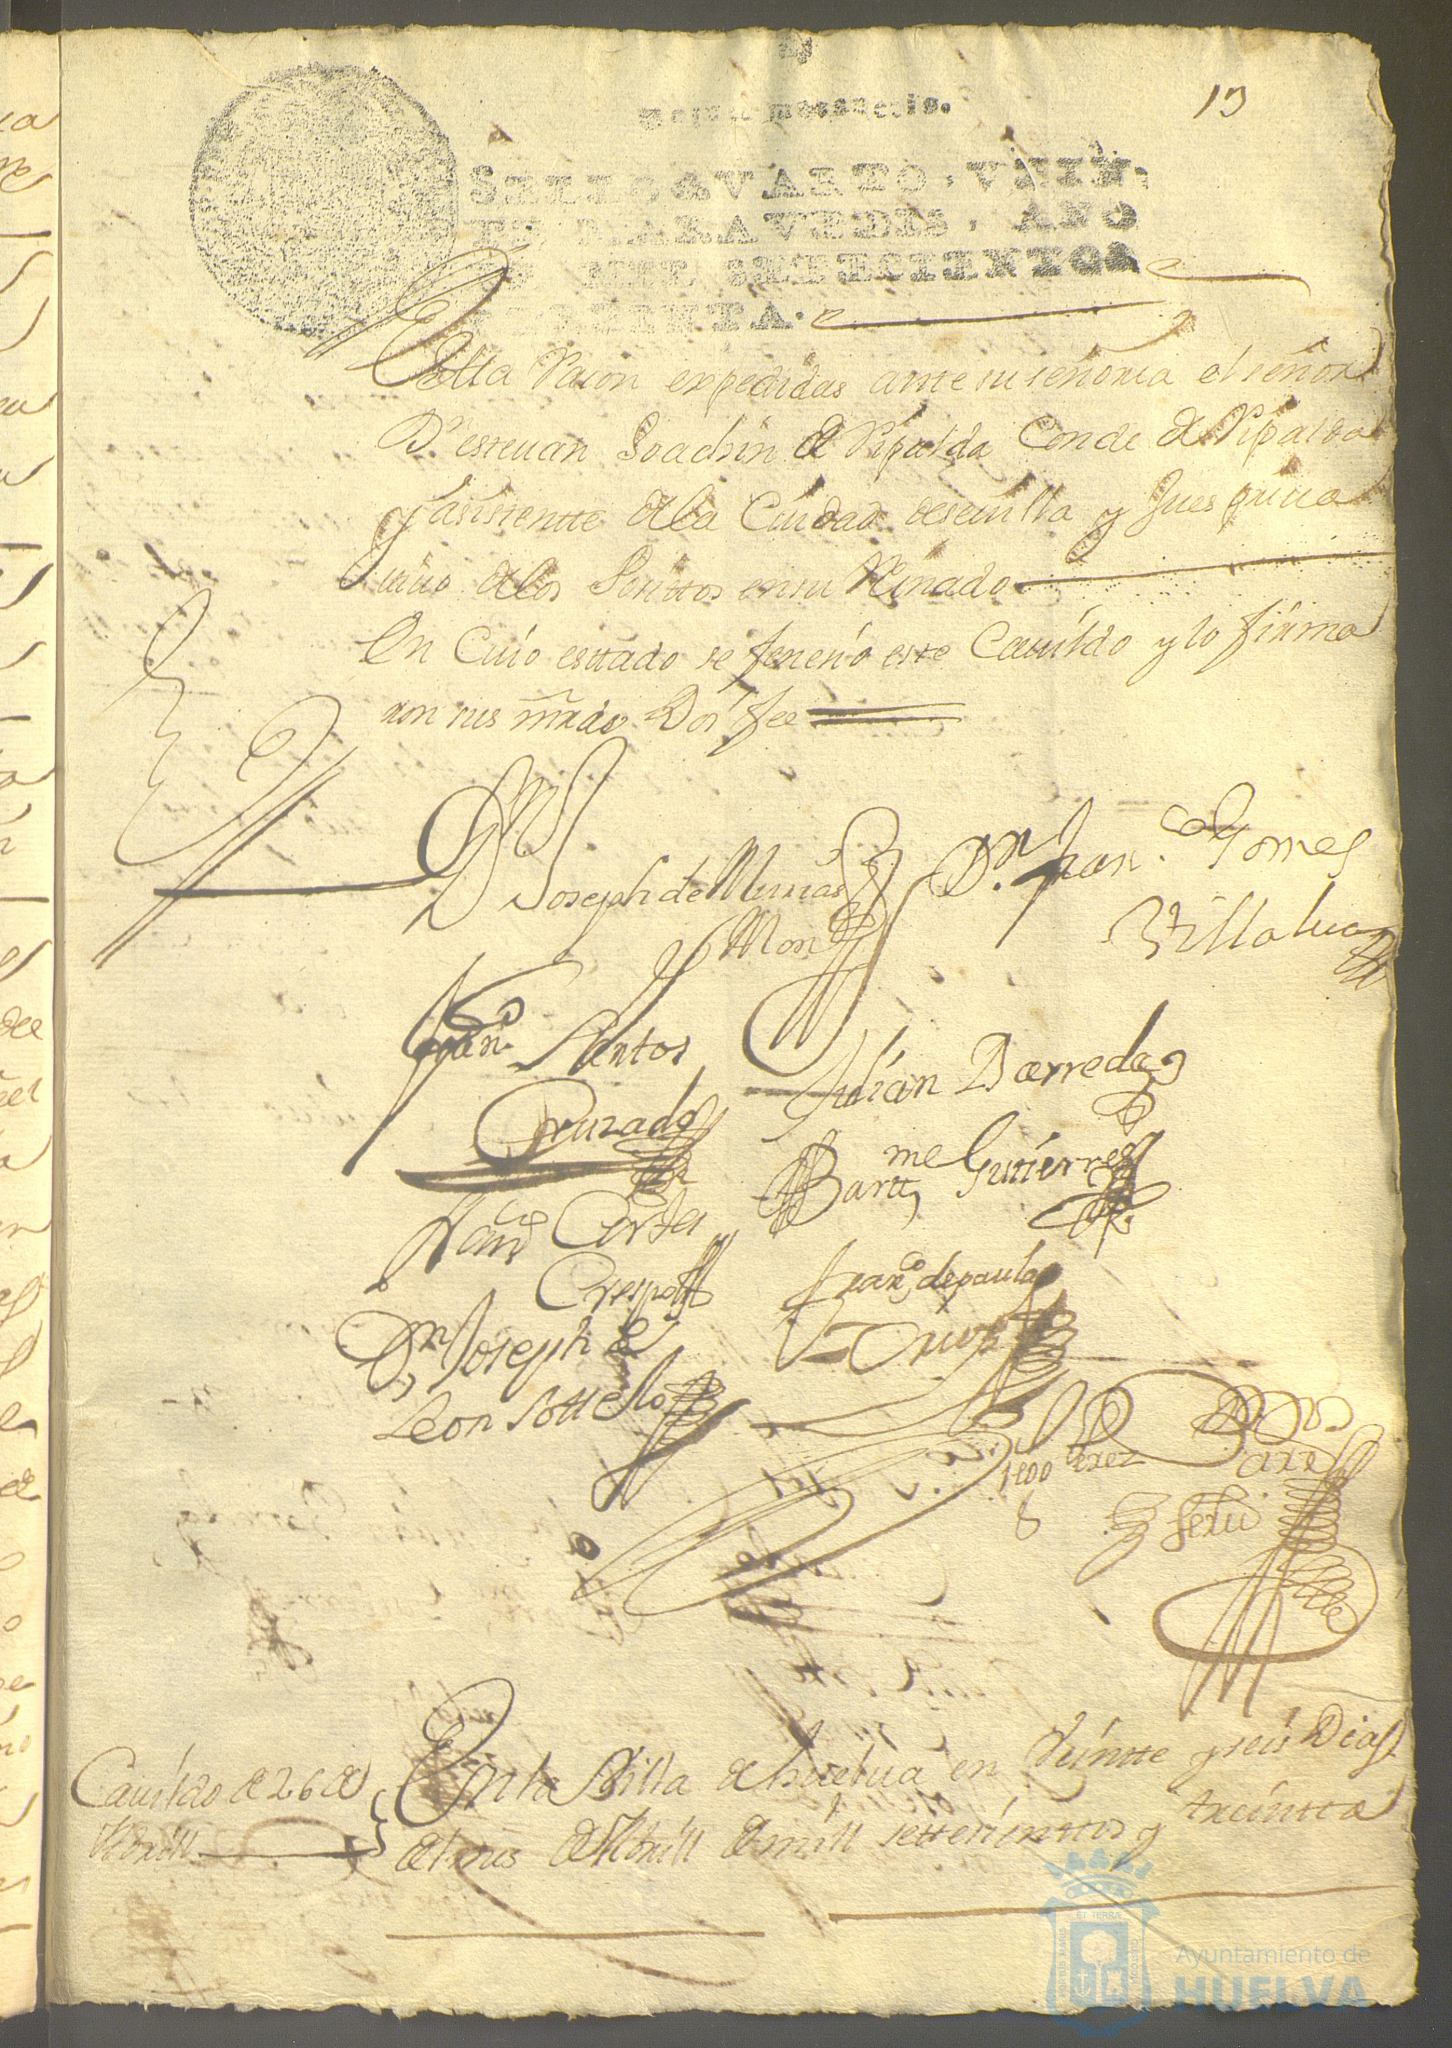 13
SELLO QVARTO, VEIN-
TE MARAVEDIS, AÑO
DE MIL SETECIENTOS
Y TREINTA.
esta Raçon expedidas ante su señoria el señor
Dn. esteuan Joachin de Ripalda Conde de Ripalda
y asistentte de la Ciudad de seuilla y Jues priua
tiuo de los en su Reinado
En Cuio esttado se feneció este Cauildo y lo firma
ron sus mrds Doi fee
Dn Joseph de Munas
Mon
Dn. Franco Gomes
Villalua
Franco Santos
Cruzado
Julian Barreda
Bartme Gutierres
Franco Cortes
Crespo
Franco de paula
Dn Joseph de
Leon Sottelo
Perez
Cauildo de 26 de
Abrill
En la Villa de huelua en Veintte y seis Dias
del mes de Abrill de mill settesienttos y treintta
Ayuntamiento de
HUELVA